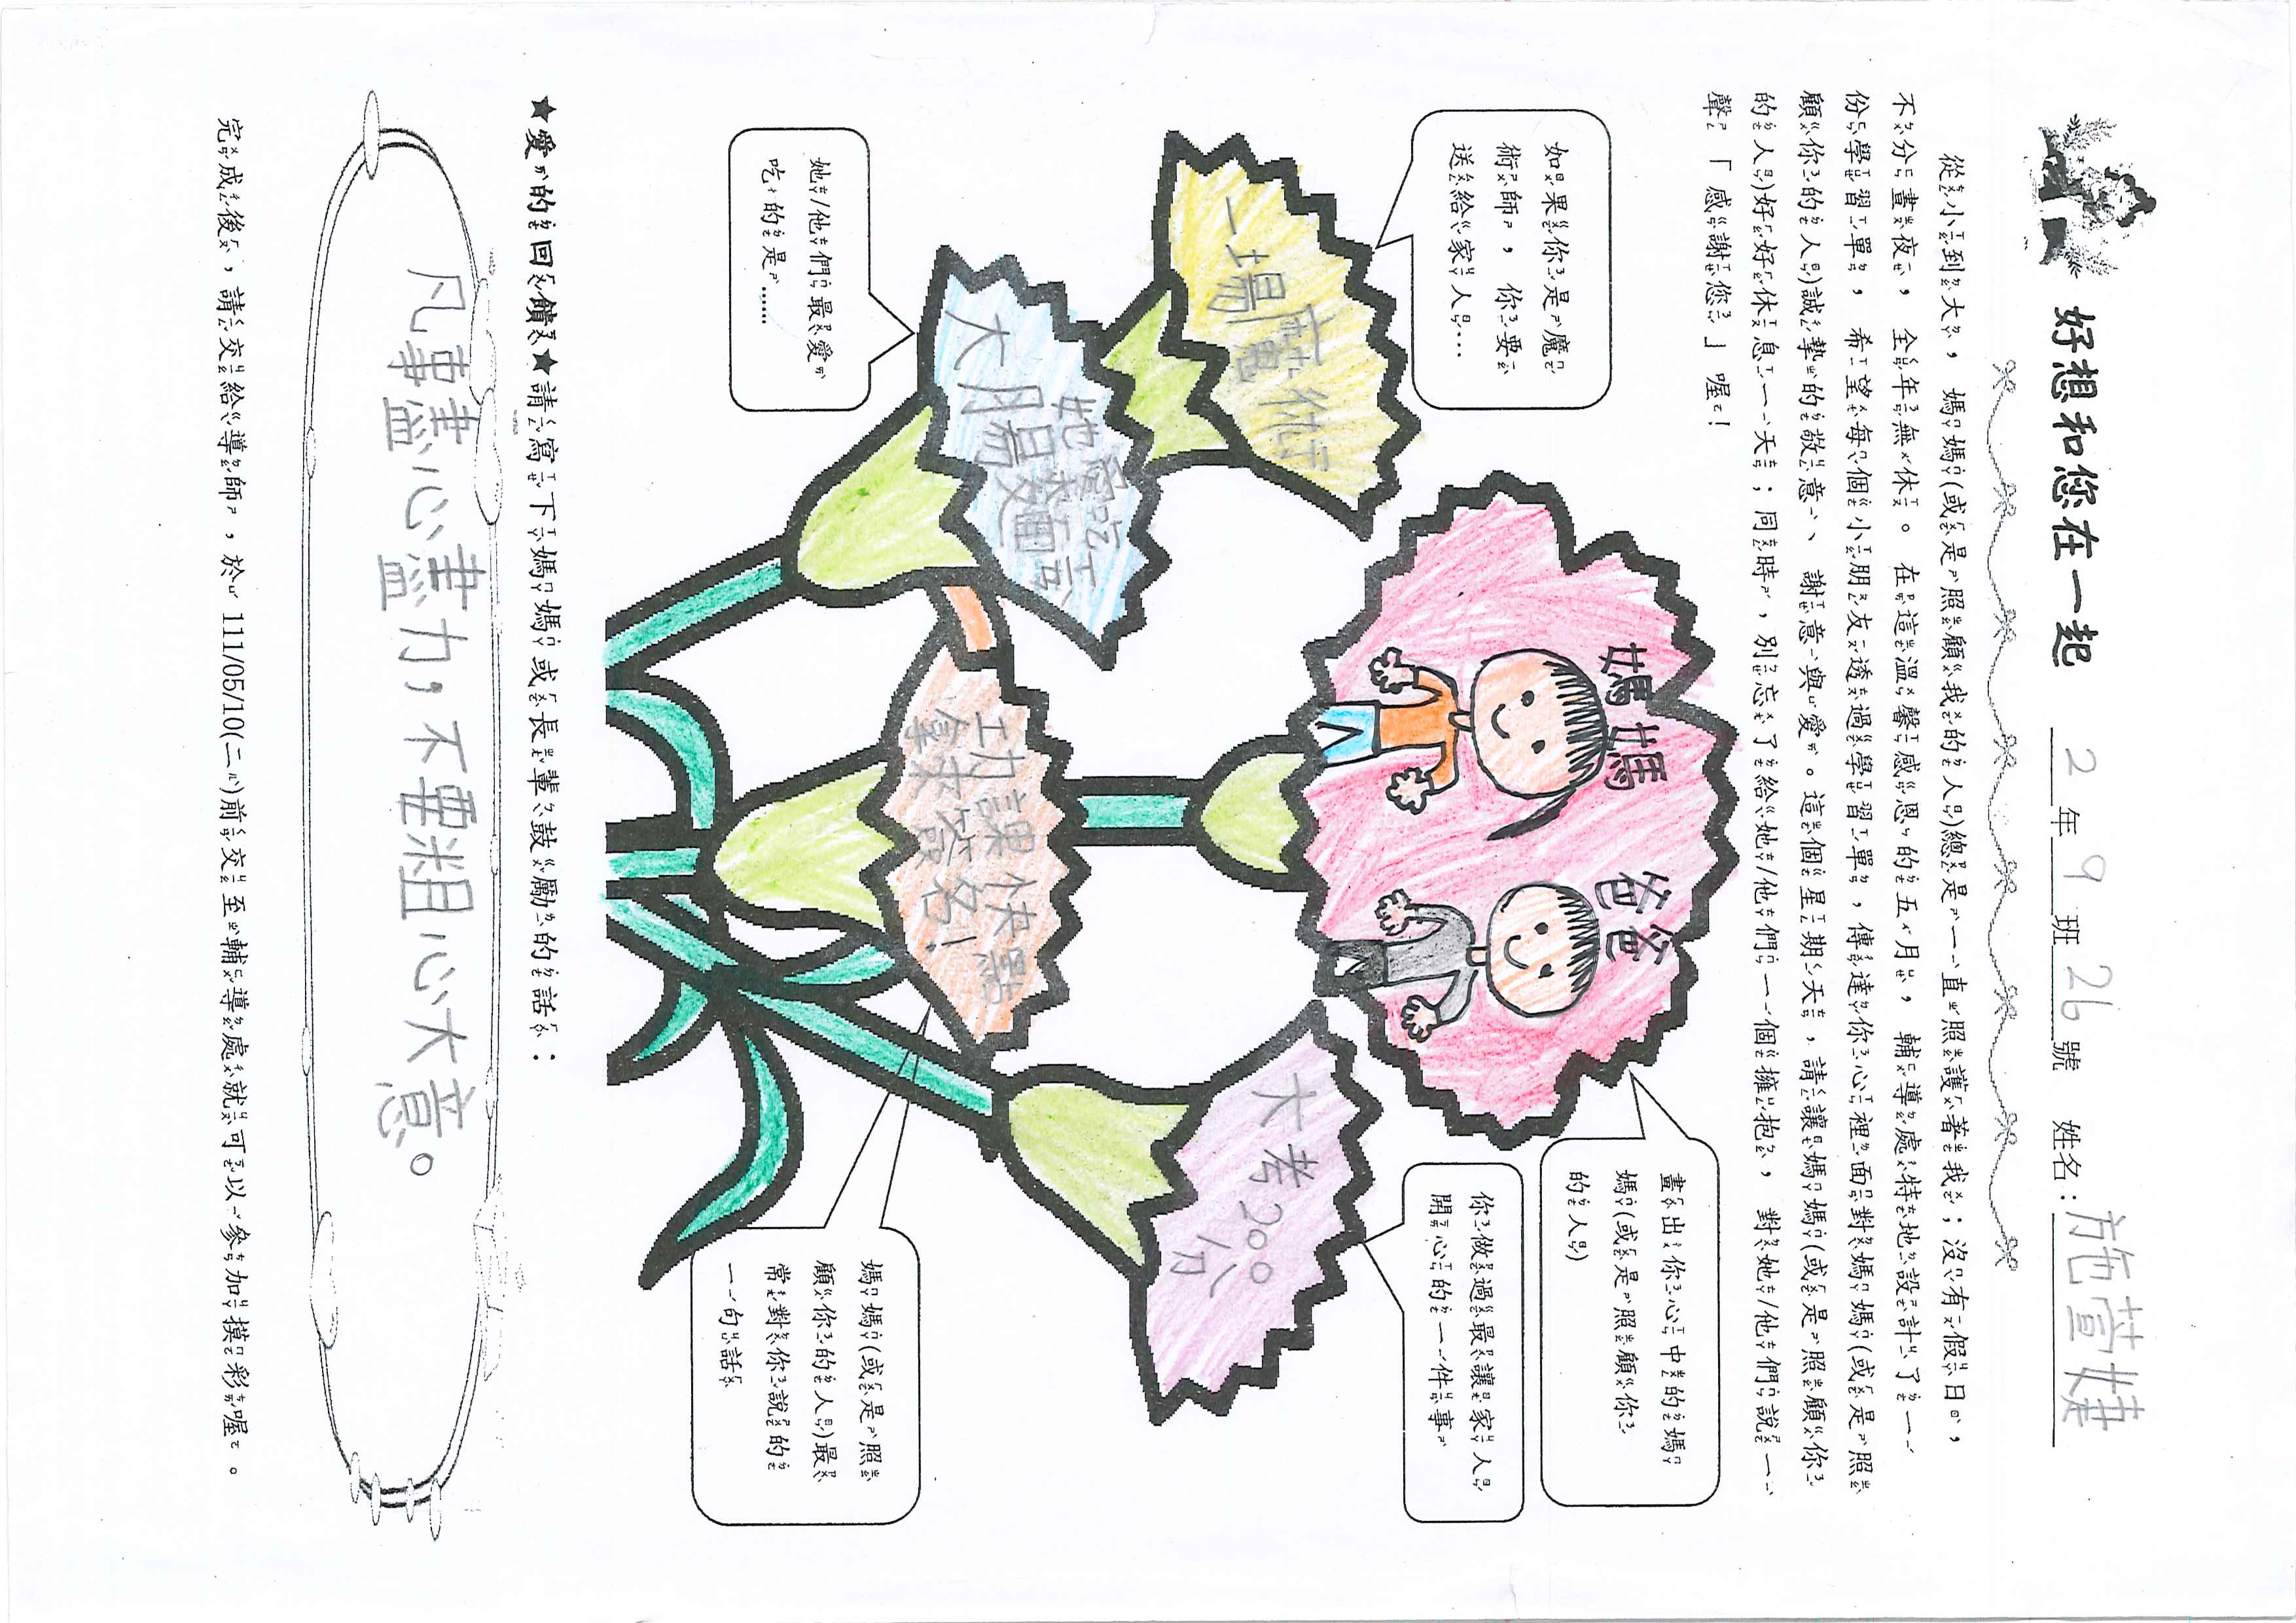 好想和您在一起 2年9班26號 姓名:施萱婕
從小到大,媽媽(或是照顧我的人)總是一直照護著我;沒有假日,
不分晝夜,全年無休。在這溫馨感恩的五月,輔導處特地設計了一
份學習單,希望每個小朋友透過學習單,傳達你心裡面對媽媽(或是照
顧你的人)誠摯的敬意、謝意與愛。這個星期天,請讓媽媽(或是照顧你
的人)好好休息一天;同時,別忘了給她/他們一個擁抱,對她/他們說一
聲「感謝您」喔!
如果你是魔
術師,你要
送給家人…
一場魔術
畫出你心中的媽
媽(或是照顧你
的人)
媽媽
爸爸
你做過最讓家人
開心的一件事
大考200
分
她/他們最愛
吃的是……
她愛吃
大腸麵
功課快點
拿來簽名!
媽媽(或是照
顧你的人)最
常對你說的
一句話
★愛的回饋★請寫下媽媽或長輩鼓勵的話:
凡事盡心盡力,不要粗心大意。
完成後,請交給導師,於111/05/10(二)前交至輔導處就可以參加摸彩喔。